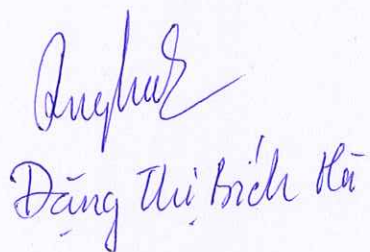 Đặng Thị Bích Hà